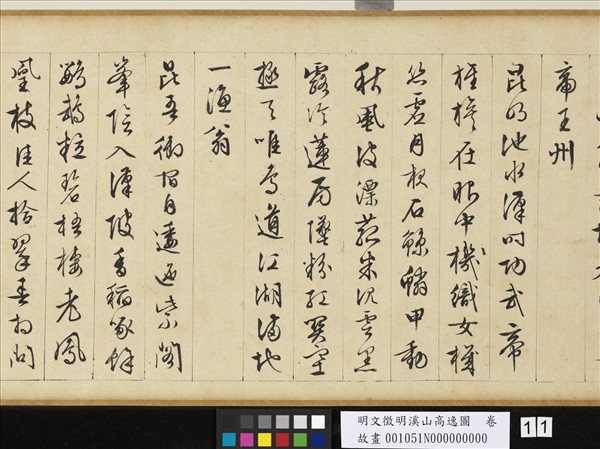 帝王州
昆明池水漢時功武帝
旌旗在眼中機織女機
絲虛月夜石鯨鱗甲動
秋風波漂菰米沉雲黑
露冷蓮房墜粉紅關塞
極天唯鳥道江湖滿地
一漁翁
昆吾御宿自逶迤紫閣
峯陰入渼陂香稻啄餘
鸚鵡粒碧梧棲老鳳
凰枝佳人拾翠春相問
明文徵明溪山高逸圖 卷
故畫 001051N000000000
11